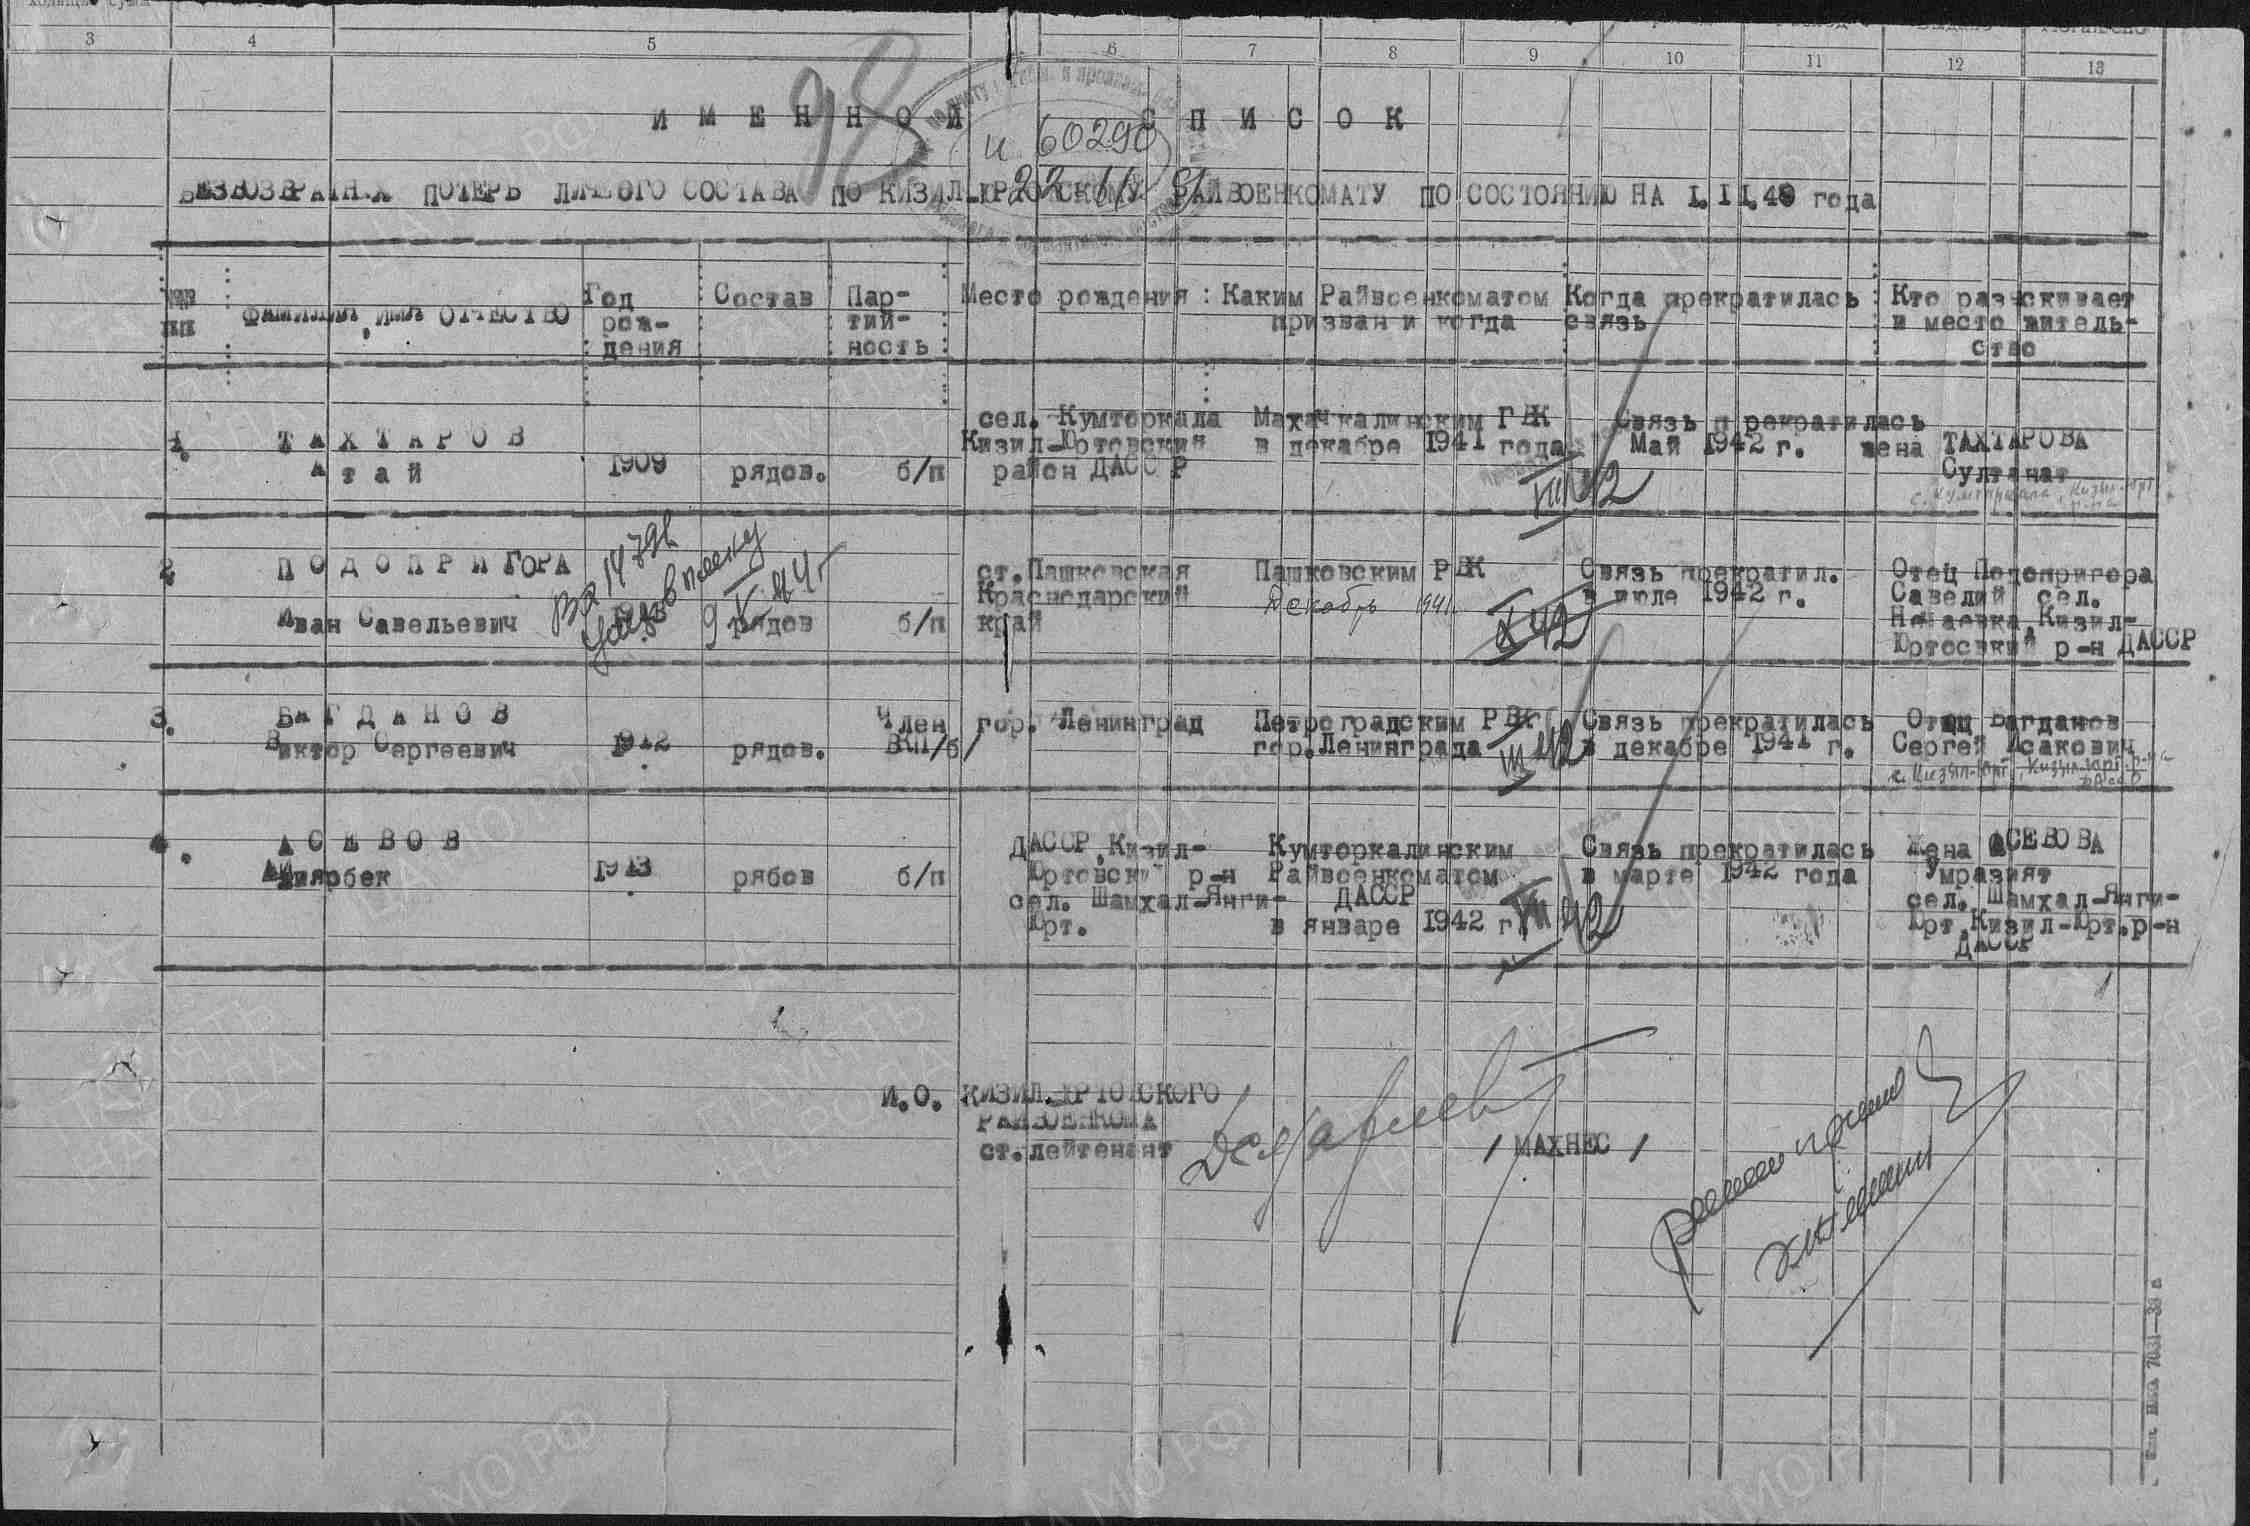 3 4 5 6 7 8 9 10 11 12 13
98
ИМЕННОЙ СПИСОК
и 60290
22 11
БЕЗВОЗВРАТН.Х ПОТЕРЬ ЛИЧНОГО СОСТАВА ПО КИЗИЛ-ЮРТОВСКОМУ РАЙВОЕНКОМАТУ ПО СОСТОЯНИЮ НА 1.II.48 года
ФАМИЛИЯ, ИМЯ ОТЧЕСТВО
Год рож-
дения
Состав
Пар-
тий-
ность
Место рождения
Каким Райвоенкоматом
призван и когда
Когда прекратилась
связь
Кто разыскивает
и место житель-
ство
1. ТАХТАРОВ
Атай
1909
рядов.
б/п
сел. Кумторкала
Кизил-Юртовский
район ДАССР
Махачкалинским ГВК
в декабре 1941 года
Связь прекратилась
Май 1942 г.
жена ТАХТАРОВА
Султанат
с. Кумторкала, Кизил-Юрт
р-на
2 ПОДОПРИГОРА
Иван Савельевич
9 V 44 г
рядов
б/п
ст. Пашковская
Краснодарский
край
Пашковским РВК
Декабрь 1941.
X 42
Связь прекратил.
в июле 1942 г.
Отец Подопригора
Савелий сел.
Нечаевка, Кизил-
Юртовский р-н ДАССР
3. БАГДАНОВ
Виктор Сергеевич
1912
рядов.
Член
ВКП/б/
гор. Ленинград
Петроградским РВК
гор. Ленинграда
III 42
Связь прекратилась
в декабре 1941 г.
Отец Багданов
Сергей Исакович
с. Кизил-Юрт, Кизил-Юрт. р-на
ДАССР
4. АСЕВОВ
1913
рябов
б/п
ДАССР, Кизил-
Юртовский р-н
сел. Шамхал-Янги-
Юрт.
Кумторкалинским
Райвоенкоматом
ДАССР
в январе 1942 г
Связь прекратилась
в марте 1942 года
Жена АСЕВОВА
Умразият
сел. Шамхал-Янги-
Юрт, Кизил-Юрт. р-н
ДАССР
И.О. КИЗИЛ-ЮРТОВСКОГО
РАЙВОЕНКОМА
ст. лейтенант
/ МАХНЕС /
ПАМЯТЬ
НАРОДА
ЦА МО РФ